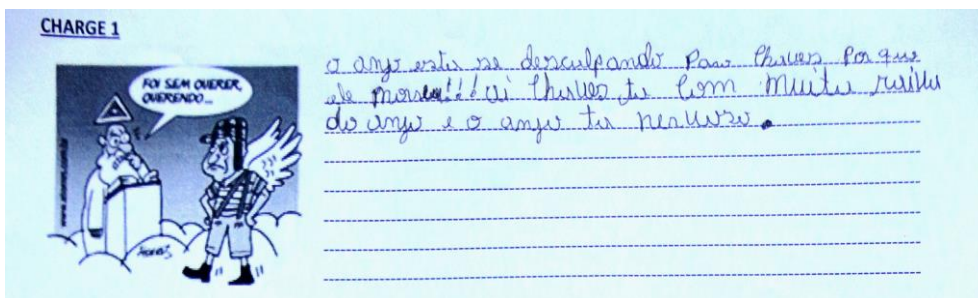 CHARGE 1
FOI SEM QUERER,
QUERENDO...
o anjo esta se desculpando Para Chaves Por que
ele morreu!!! ai Chaves ta Com Muita raiva
do anjo e o anjo ta nervoso.